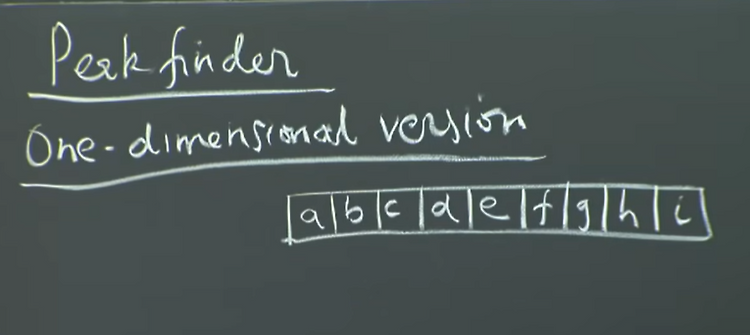 Peak finder
One-dimensional version
a b c d e f g h i